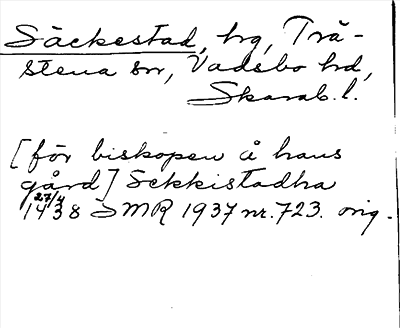 Säckestad, hrg, Trä-
stena sn, Vadsbo hd,
Skarab. l.
[för biskopen å hans
gård] Sekkistadha
27/4
1438 SMR 1937 nr. 723. orig.